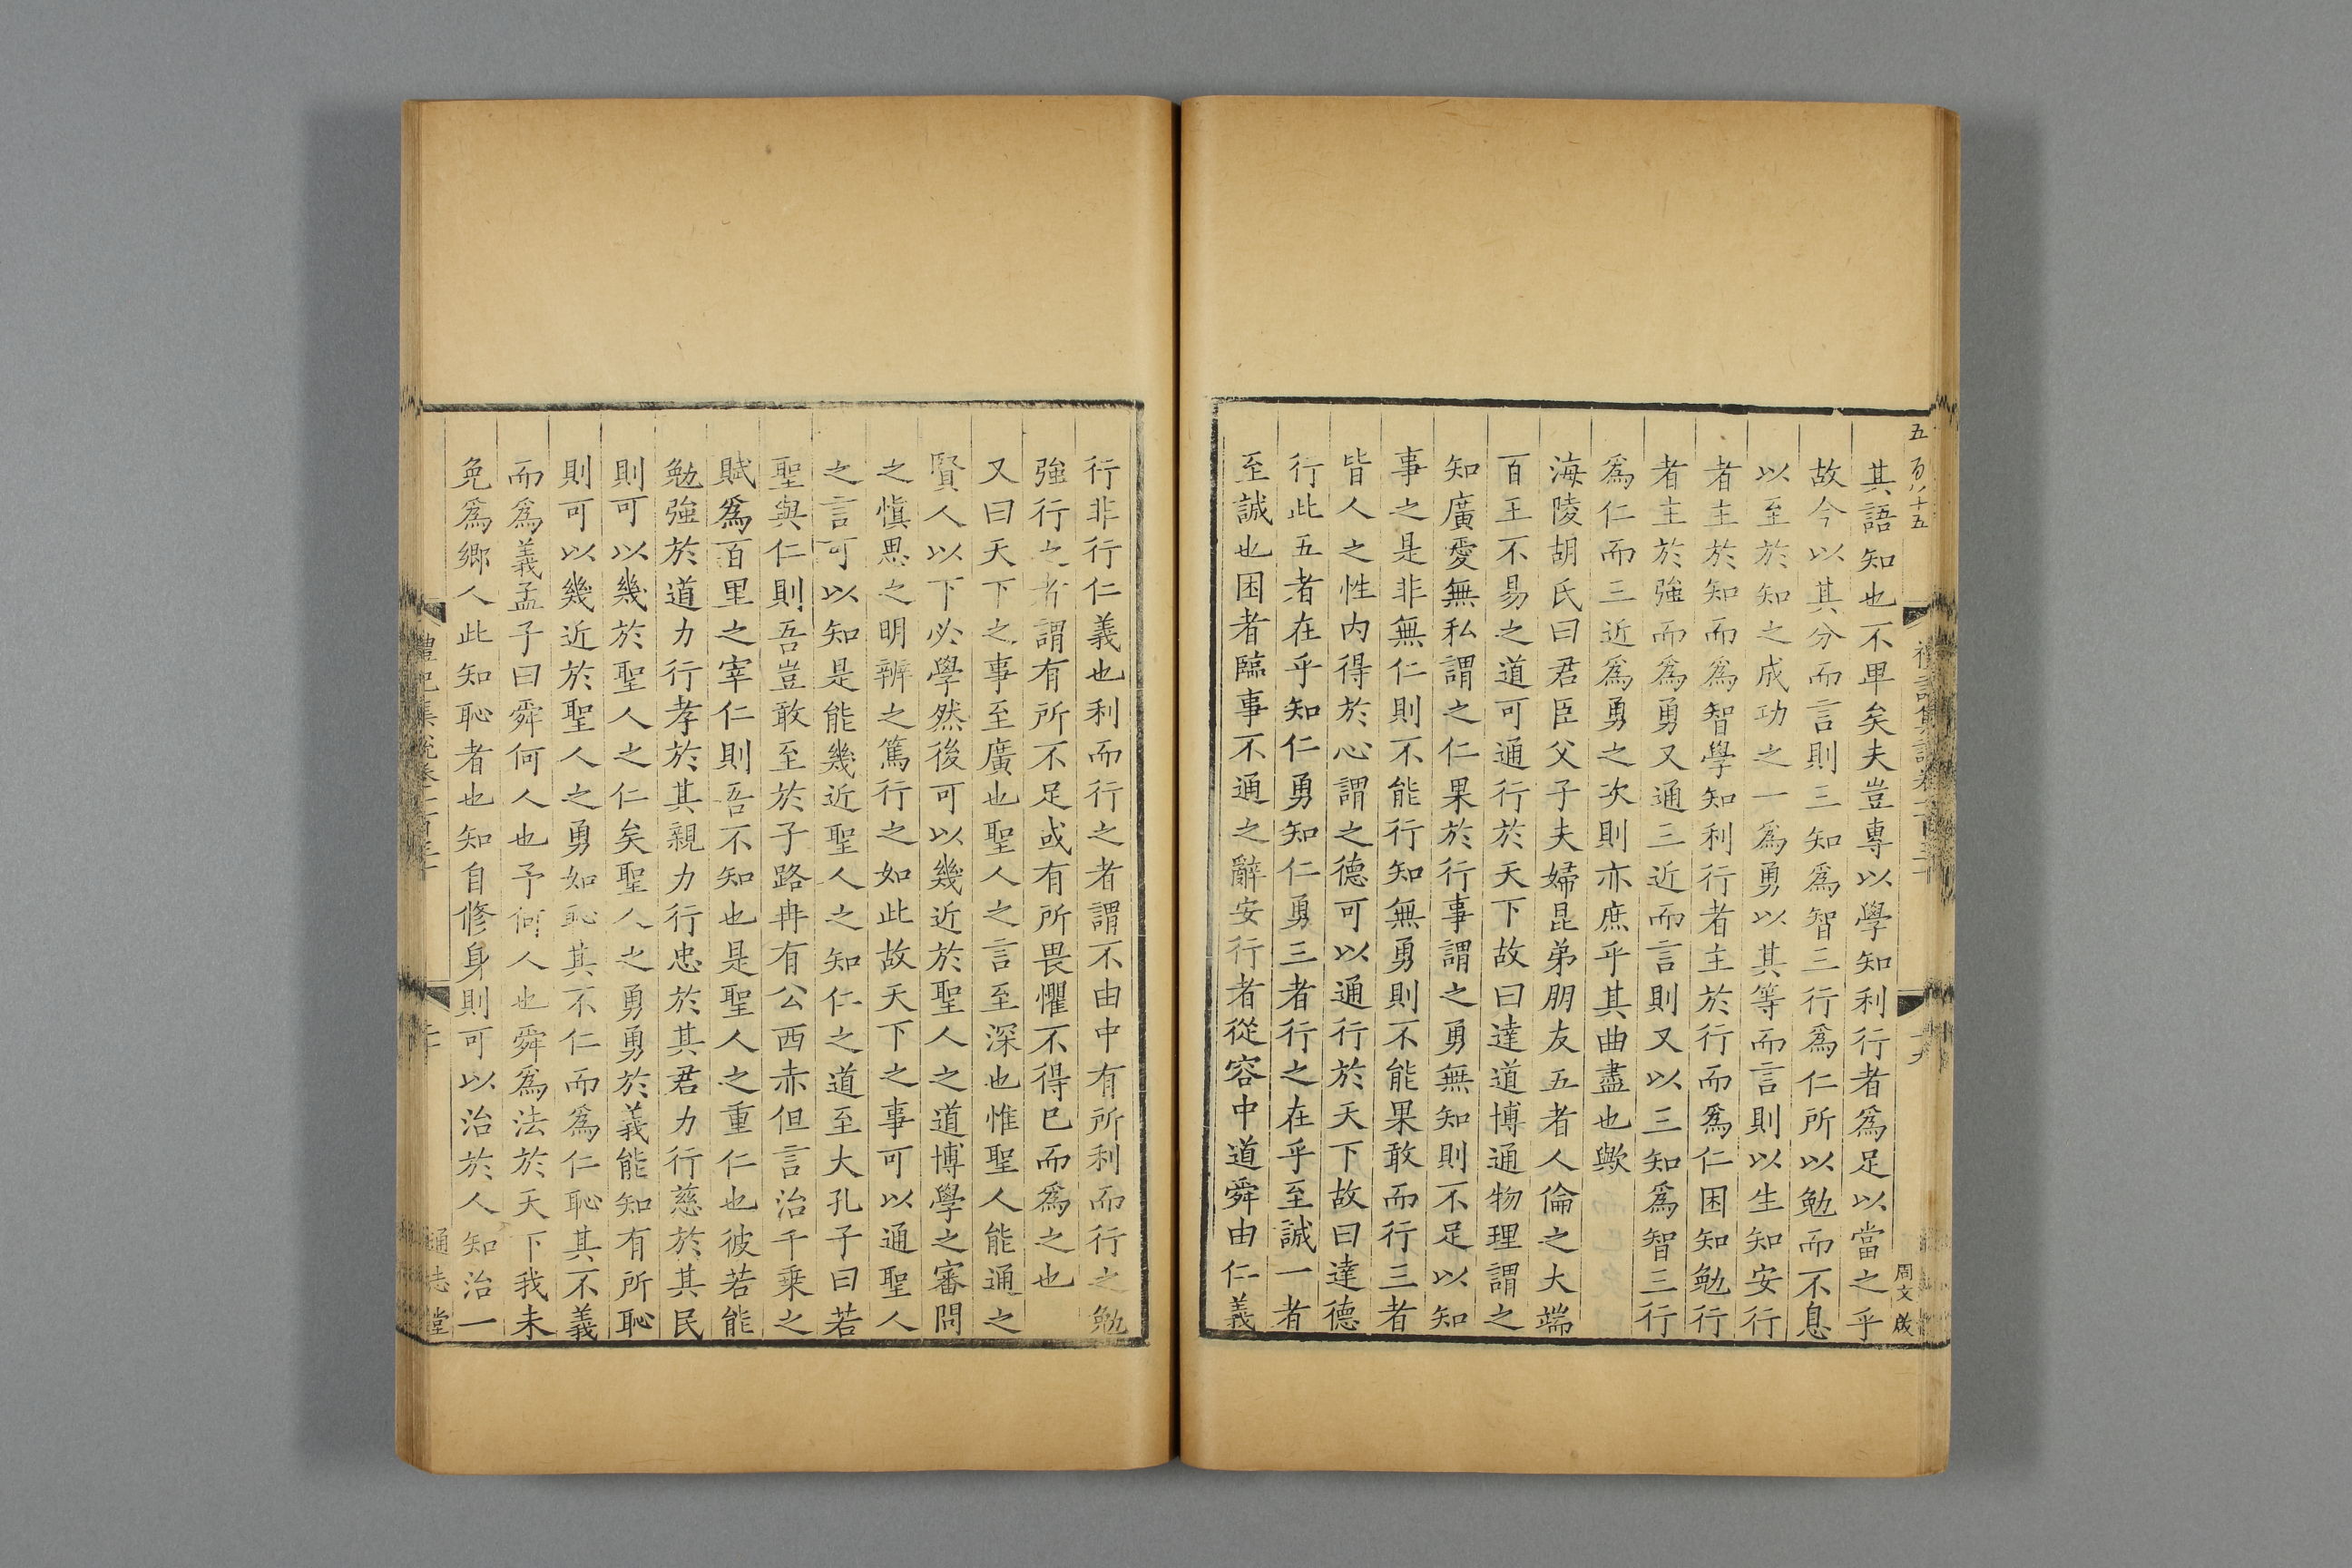 其語知也不卑矣夫豈專以學知利行者爲足以當之乎
故今以其分而言則三知爲智三行爲仁所以勉而不息
以至於知之成功之一爲勇以其等而言則以生知安行
者主於知而爲智學知利行者主於行而爲仁困知勉行
者主於強而爲勇又通三近而言則又以三知爲智三行
爲仁而三近爲勇之次則亦庶乎其曲盡也歟
海陵胡氏曰君臣父子夫婦昆弟朋友五者人倫之大端
百王不易之道可通行於天下故曰達道博通物理謂之
知廣愛無私謂之仁果於行事謂之勇無知則不足以知
事之是非無仁則不能行知無勇則不能果敢而行三者
皆人之性內得於心謂之德可以通行於天下故曰達德
行此五者在乎知仁勇知仁勇三者行之在乎至誠一者
至誠也困者臨事不通之辭安行者從容中道舜由仁義
行非行仁義也利而行之者謂不由中有所利而行之勉
強行之者謂有所不足或有所畏懼不得已而爲之也
又曰天下之事至廣也聖人之言至深也惟聖人能通之
賢人以下必學然後可以幾近於聖人之道博學之審問
之愼思之明辨之篤行之如此故天下之事可以通聖人
之言可以知是能幾近聖人之知仁之道至大孔子曰若
聖與仁則吾豈敢至於子路冉有公西赤但言治千乗之
賦爲百里之宰仁則吾不知也是聖人之重仁也彼若能
勉強於道力行孝於其親力行忠於其君力行慈於其民
則可以幾於聖人之仁矣聖人之勇勇於義能知有所恥
則可以幾近於聖人之勇如恥其不仁而爲仁恥其不義
而爲義孟子曰舜何人也予何人也舜爲法於天下我未
免爲鄉人此知恥者也知自修身則可以治於人知治一
通志堂